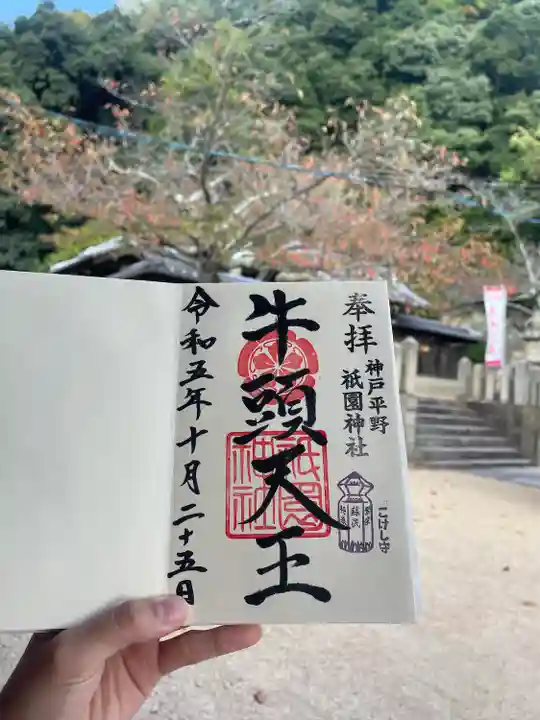 奉拝
神戸平野
祇園神社
牛頭天王
祇園
神社
こけし守
蘇民
令和五年十月二十五日